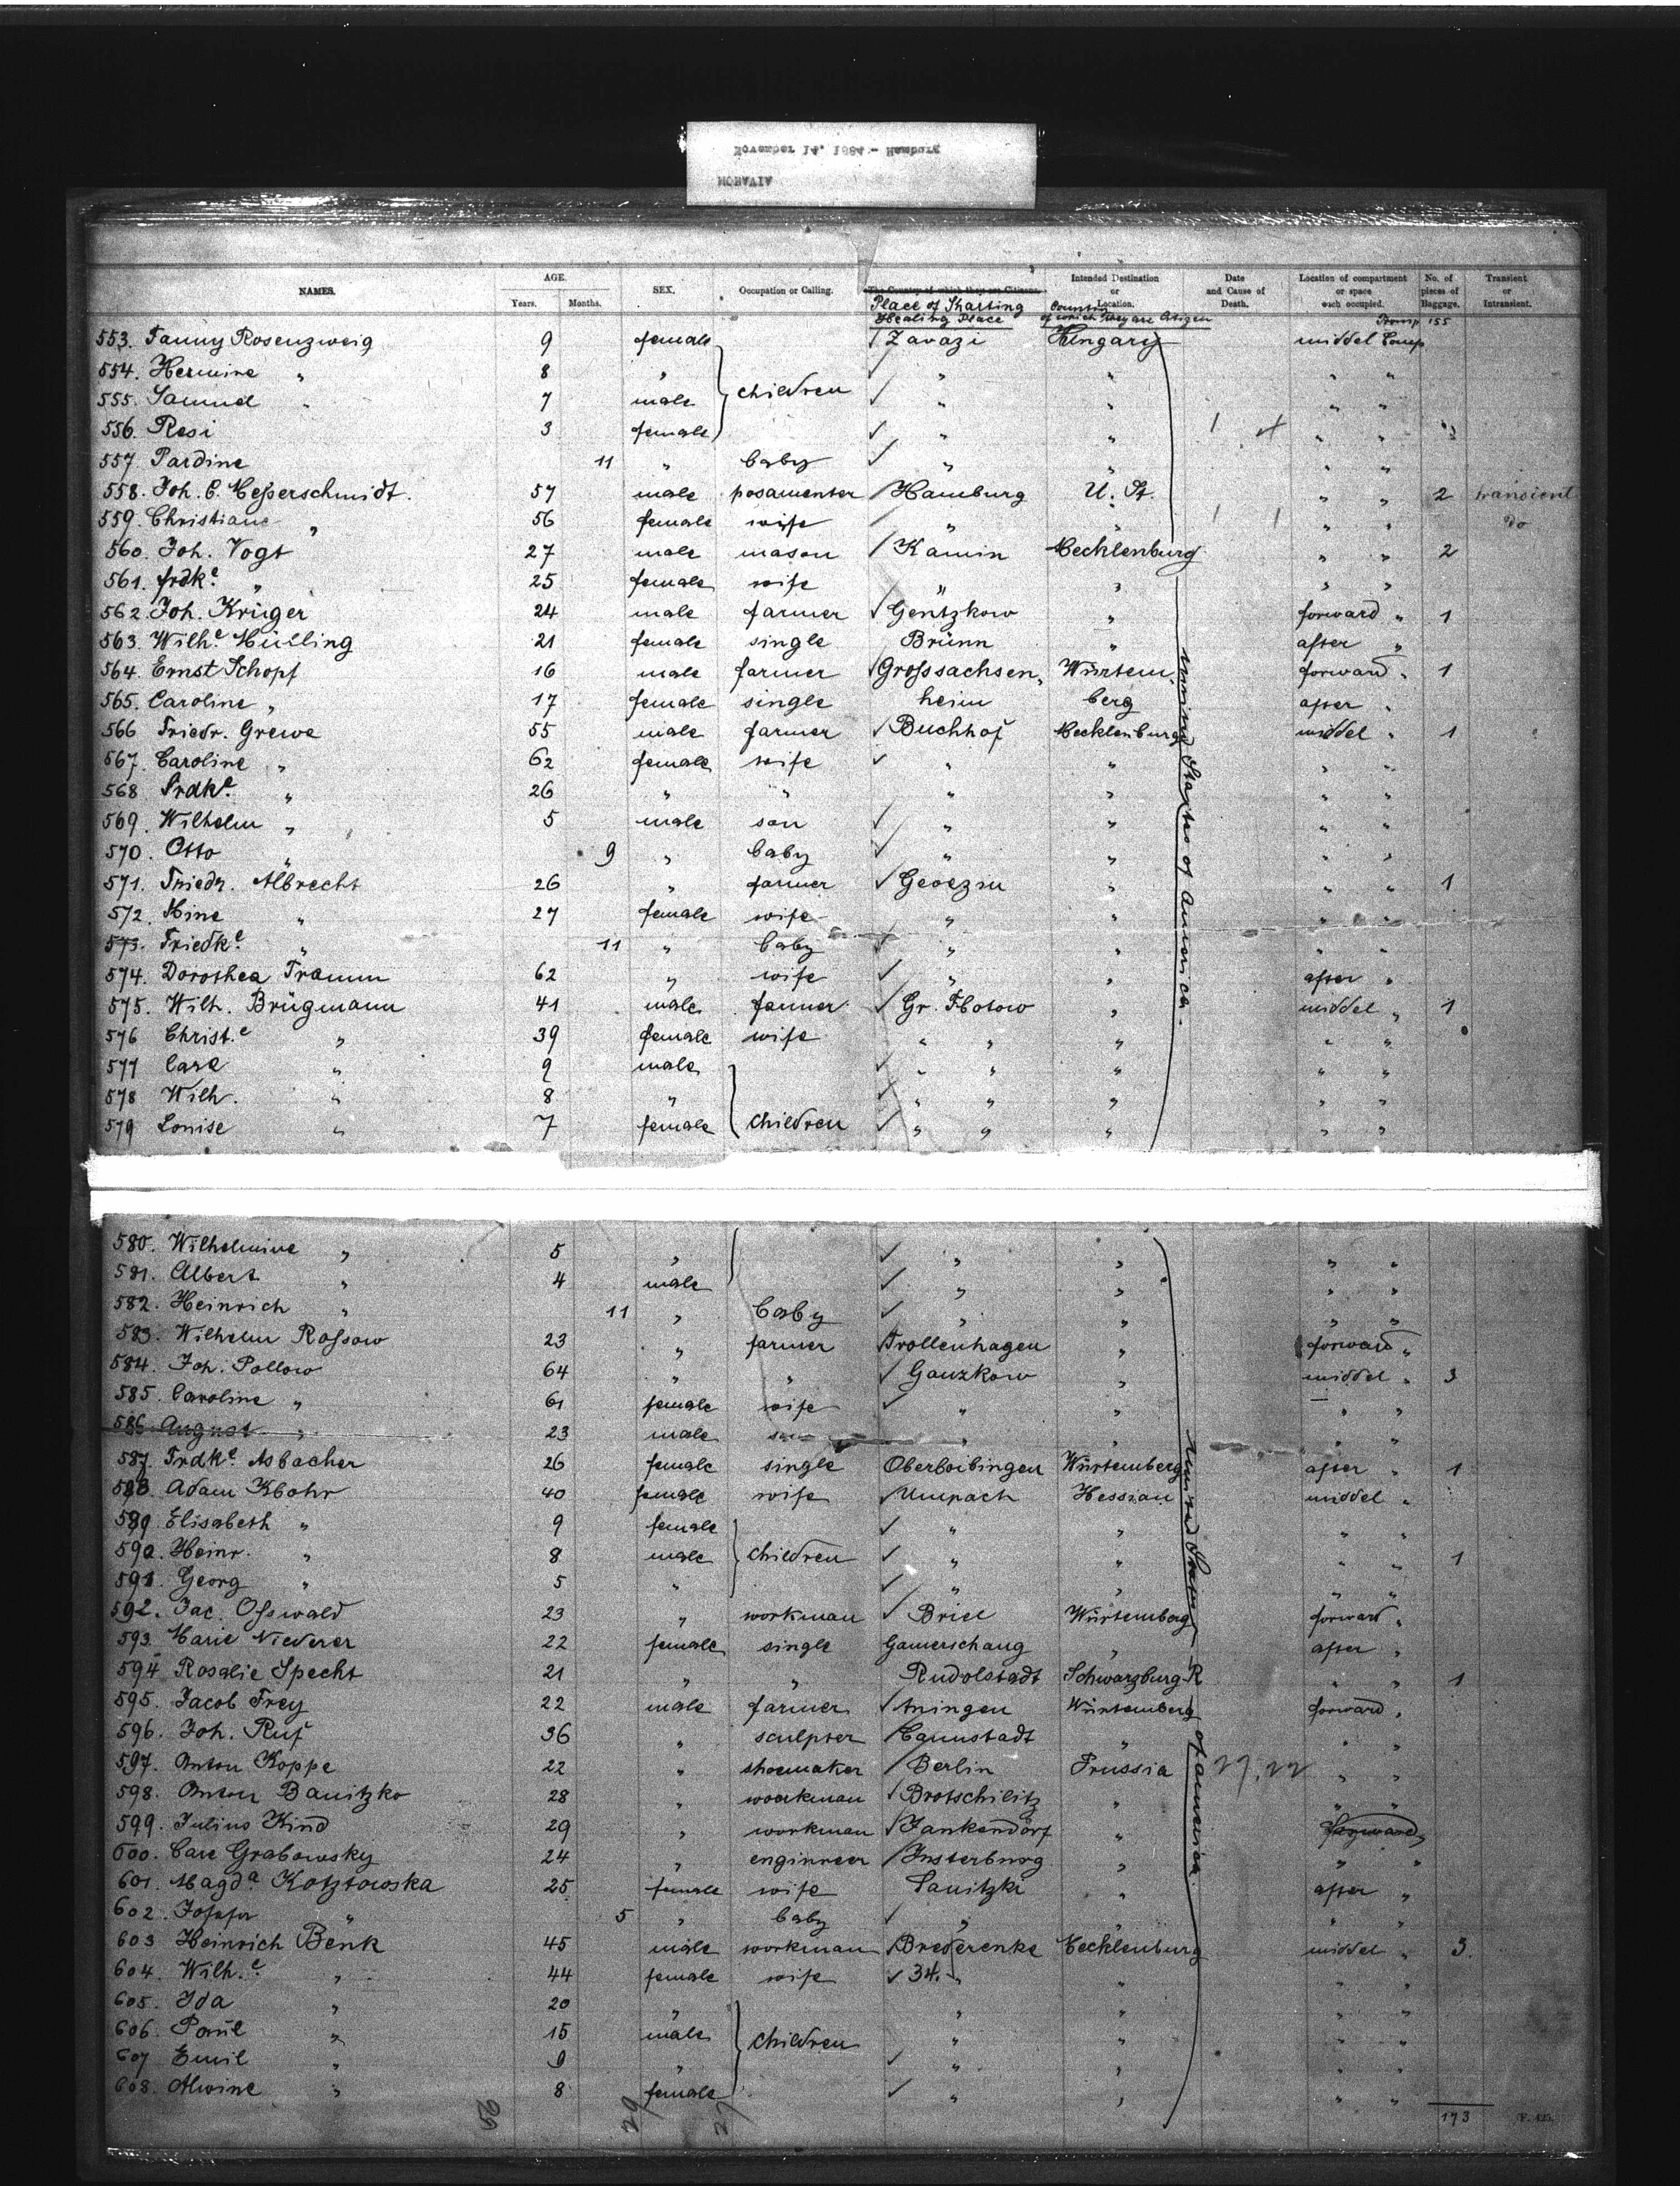 November 14, 1884 - Hamburg
MORAVIA
NAMES. AGE. Years. Months. SEX. Occupation or Calling. The Country of which they are Citizens. Intended Destination or Location. Date and Cause of Death. Location of compartment or space each occupied. No. of pieces of Baggage. Transient or Intransient.
Place of Starting Country of which they are Citizen
Transp 155
553. Fanny Rosenzweig 9 female Zavazi Hungary middel Comp
554. Hermine " 8 " " " " "
555. Samuel " 7 male children " " " "
556. Resi 3 female " " " " 3
557. Pardine 11 " baby " " " "
558. Joh. C. Meßerschmidt. 57 male posamenter Hamburg U. St. " " 2 transient
559. Christiane " 56 female wife " " " " do
560. Joh. Vogt 27 male mason Kamin Mecklenburg " " 2
561. Frdke. " 25 female wife " " " "
562. Joh. Krüger 24 male farmer Gentzkow " forward " 1
563. Wilhe. Hülling 21 female single Brünn " after "
564. Ernst Schopf 16 male farmer Großsachsen, Würtem, forward " 1
565. Caroline " 17 female single heim berg after "
566 Friedr. Grewe 55 male farmer Buchhof Mecklenburg middel " 1
567. Caroline " 62 female wife " " " "
568 Frdke. " 26 " " " " " "
569. Wilhelm " 5 male son " " " "
570. Otto " 9 " baby " " " "
571. Friedr. Albrecht 26 " farmer " " " 1
572. Mine " 27 female wife " " " "
573. Friedke. " 11 " baby " " " "
574. Dorothea Tramm 62 " wife " " after "
575. Wilh. Brügmann 41 male farmer Gr. Flotow " middel " 1
576 Christ.e " 39 female wife " " " " "
577 Carl " 9 male " " " " "
578 Wilh. " 8 " " " " " "
579 Louise " 7 female children " " " " "
United States of America.
580. Wilhelmine " 5 " " " " "
581. Albert " 4 male " " " "
582. Heinrich " 11 " baby " " "
583. Wilhelm Roßow 23 " farmer Trollenhagen " forward "
584. Joh. Pollow 64 " " Ganzkow " middel " 3
585. Caroline " 61 female wife " " " "
586. August " 23 male son " " " "
587. Frdke. Asbacher 26 female single Oberboibingen Würtemberg after " 1
588 Adam Klohr 40 female wife Umpach Hessian middel "
589. Elisabeth " 9 female " " " "
590. Heinr. " 8 male children " " " " 1
591. Georg " 5 " " " " "
592. Jac. Oßwald 23 " workman Briel Würtemberg forward "
593. Marie Niederer 22 female single Gamerschang " after "
594 Rosalie Specht 21 " " Rudolstadt Schwarzburg-R " " 1
595. Jacob Frey 22 male farmer Aningen Würtemberg forward "
596. Joh. Ruf 36 " sculpter Cannstadt " " "
597. Anton Koppe 22 " shoemaker Berlin Prussia " "
598. Anton Banitzko 28 " woorkman Brotschilitz " " "
599. Julius Kind 29 " workman Jankendorf " forward "
600. Carl Grabowsky 24 " engineer Insterburg " " "
601. Magda. Kotztowska 25 female wife Sanitzki " after "
602. " 5 " baby " " " "
603 Heinrich Benk 45 male workman Brederenke Mecklenburg middel " 3.
604. Wilh.e. " 44 female wife 34. " " " "
605. Ida " 20 " " " " "
606. Paul " 15 male children " " " "
607 Emil " 9 " " " " "
608. Alwine " 8 female " " " "
United States of America
173